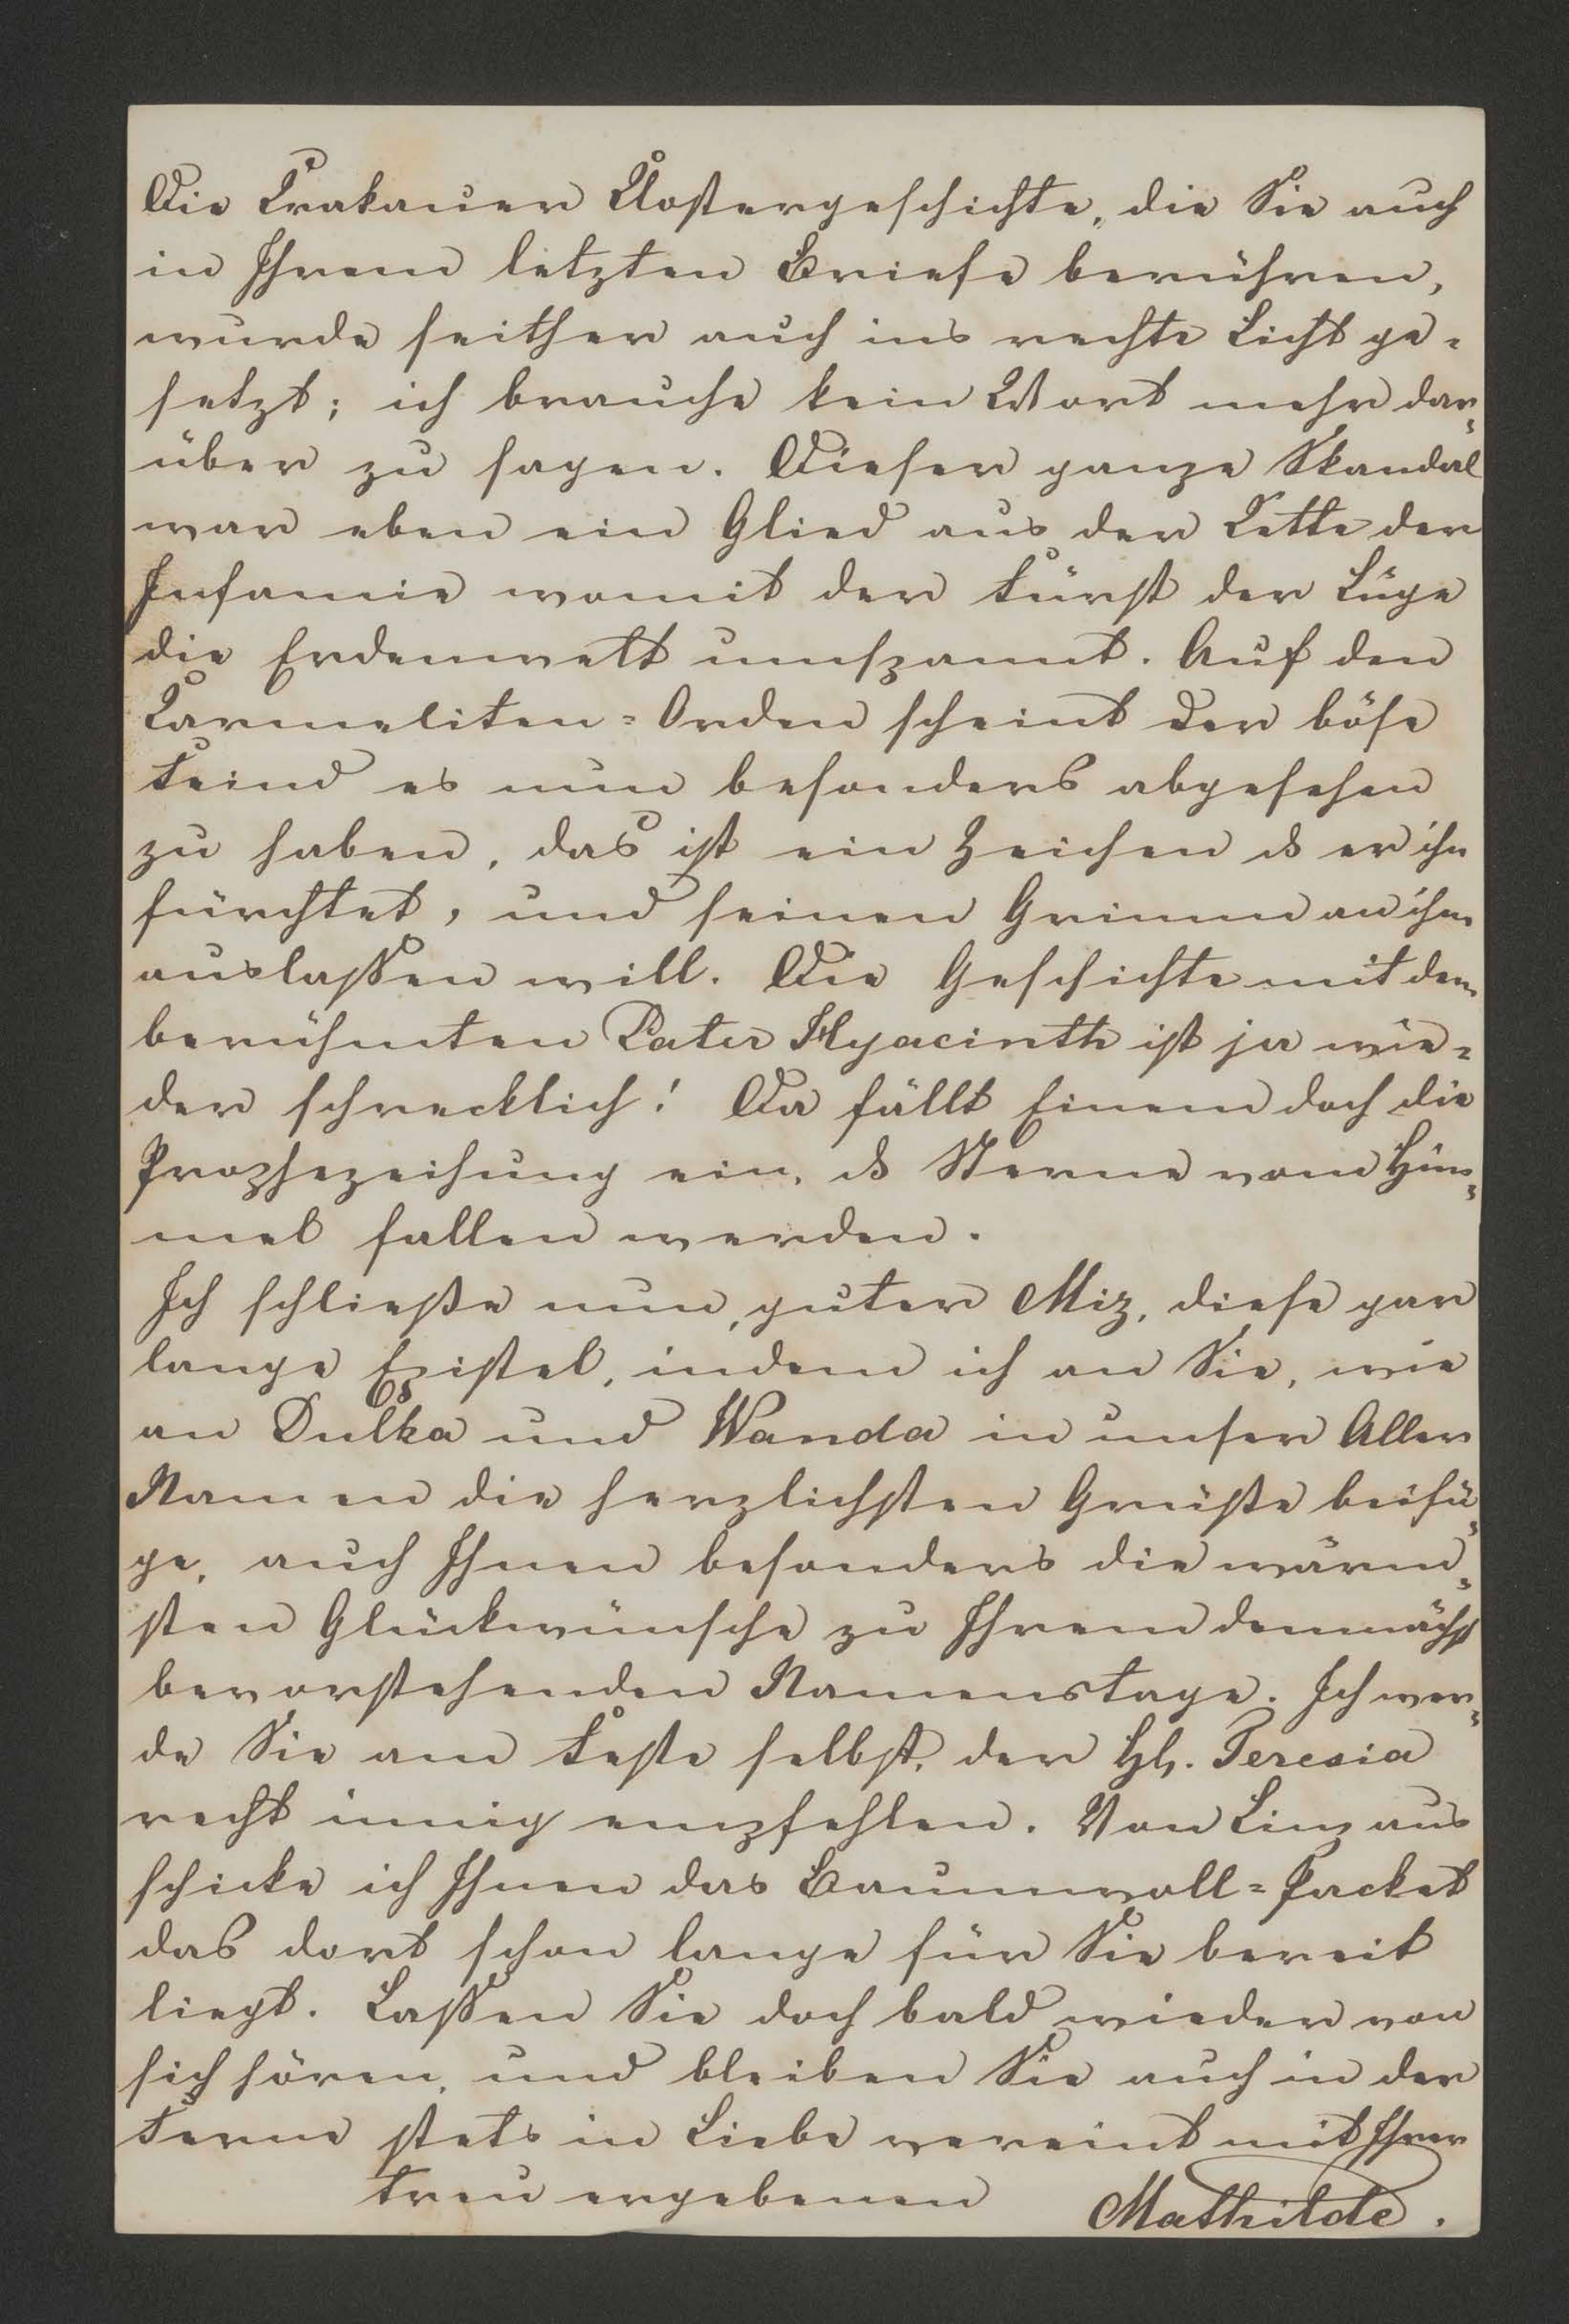 Die Krakauer Klostergeschichte, die Sie auch
in Ihrem letzten Briefe berühren,
wurde seither auch ins rechte Licht ge=
setzt; ich brauche kein Wort mehr dar=
über zu sagen. Dieser ganze Skandal
war eben ein Glied aus der Kette der
Infamie womit der Fürst der Lüge
die Erdenwelt umspannt. Auf den
Karmeliten=Orden scheint der böse
Feind es nun besonders abgesehen
zu haben, das ist ein Zeichen ds er ihn
fürchtet, und seinen Grimm an ihm
auslassen will. Die Geschichte mit dem
berühmten Pater Hyacinth ist ja wie=
der schrecklich! Da fällt Einem doch die
Prophezeihung ein, ds Sterne vom Him=
mel fallen werden.
Ich schließe nun, guter Miz, diese gar
lange Epistel, indem ich an Sie, wie
an Dulka und Wanda in unser Aller
Namen die herzlichsten Grüße beifü=
ge, auch Ihnen besonders die wärm=
sten Glückwünsche zu Ihrem demnächst
bevorstehenden Namenstage. Ich wer=
de Sie am Feste selbst, der Hl. Teresia
recht innig empfehlen. Von Linz aus
schicke ich Ihnen das Baumwoll=Packet
das dort schon lange für Sie bereit
liegt. Lassen Sie doch bald wieder von
sich hören, und bleiben Sie auch in der
Ferne stets in Liebe vereint mit Ihrer
treu ergebenen Mathilde.